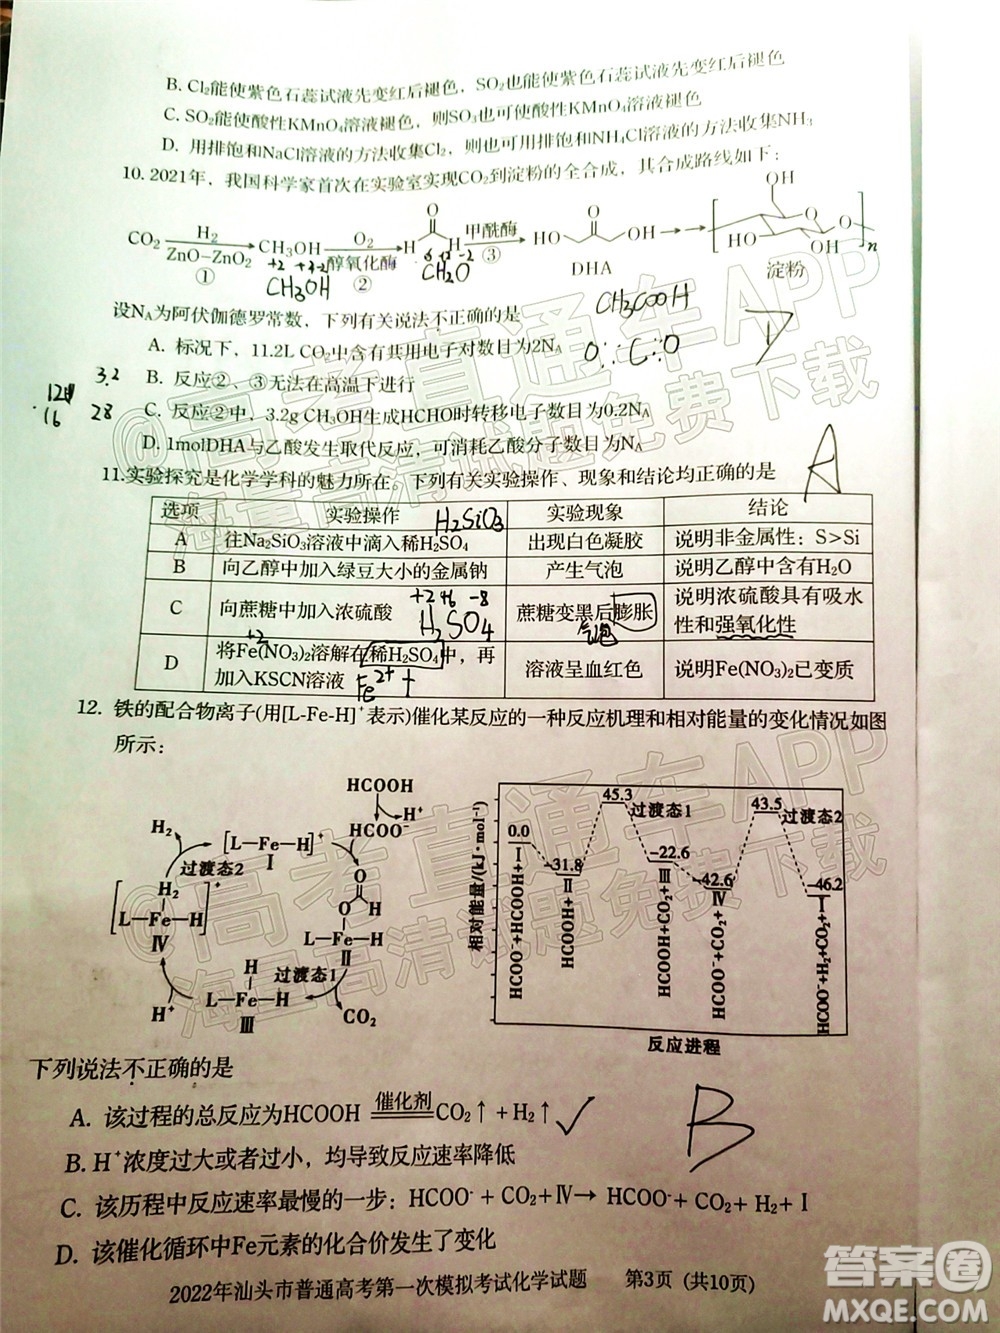 B. Cl₂能使紫色石蕊试液先变红后褪色，SO₂也能使紫色石蕊试液先变红后褪色
C. SO₂能使酸性KMnO₄溶液褪色，则SO₃也可使酸性KMnO₄溶液褪色
D. 用排饱和NaCl溶液的方法收集Cl₂，则可用排饱和NH₄Cl溶液的方法收集NH₃
10. 2021年，我国科学家首次在实验室实现CO₂到淀粉的全合成，其合成路线如下：
CO₂ H₂ ZnO-ZnO₂ ① CH₃OH O₂ 醇氧化酶 ② H O H 甲酰酶 ③ HO O OH DHA OH O O HO OH n 淀粉
+2 +3-2
CH₃OH
CH₂O
CH₃COOH
设Nᴀ为阿伏伽德罗常数，下列有关说法不正确的是
A. 标况下，11.2L CO₂中含有共用电子对数目为2Nᴀ
O∷C∷O
D
B. 反应②、③无法在高温下进行
3.2
16
28
C. 反应②中，3.2g CH₃OH生成HCHO时转移电子数目为0.2Nᴀ
D. 1molDHA与乙酸发生取代反应，可消耗乙酸分子数目为Nᴀ
11.实验探究是化学学科的魅力所在。下列有关实验操作、现象和结论均正确的是
A
选项 实验操作 实验现象 结论
H₂SiO₃
A 往Na₂SiO₃溶液中滴入稀H₂SO₄ 出现白色凝胶 说明非金属性：S>Si
B 向乙醇中加入绿豆大小的金属钠 产生气泡 说明乙醇中含有H₂O
C 向蔗糖中加入浓硫酸 蔗糖变黑后膨胀 说明浓硫酸具有吸水
性和强氧化性
+2+6 -8
H₂SO₄
气泡
+2
D 将Fe(NO₃)₂溶解在稀H₂SO₄中，再
加入KSCN溶液 溶液呈血红色 说明Fe(NO₃)₂已变质
Fe²⁺ +
12. 铁的配合物离子(用[L-Fe-H]⁺表示)催化某反应的一种反应机理和相对能量的变化情况如图
所示：
HCOOH
H⁺
HCOO⁻
H₂
[L-Fe-H]⁺
I
过渡态2
H₂
[L-Fe-H]⁺
IV
O
H
O
L-Fe-H
II
H
L-Fe-H
III
过渡态1
H⁺
CO₂
相对能量/(kJ·mol⁻¹)
0.0
-31.8
45.3
过渡态1
-22.6
-42.6
43.5
过渡态2
-46.2
HCOO⁻+HCOOH+I
HCOOH+II
HCOOH+CO₂+III
HCOO⁻+CO₂+IV
HCOO⁻+H₂+CO₂+I
反应进程
下列说法不正确的是
A. 该过程的总反应为HCOOH 催化剂 CO₂↑+H₂↑ ✓
B
B. H⁺浓度过大或者过小，均导致反应速率降低
C. 该历程中反应速率最慢的一步：HCOO⁻+CO₂+IV→ HCOO⁻+CO₂+H₂+I
D. 该催化循环中Fe元素的化合价发生了变化
2022年汕头市普通高考第一次模拟考试化学试题 第3页（共10页）
@高考直通车APP
海量高清试题免费下载
@高考直通车APP
海量高清试题免费下载
答案圈
MXQE.COM